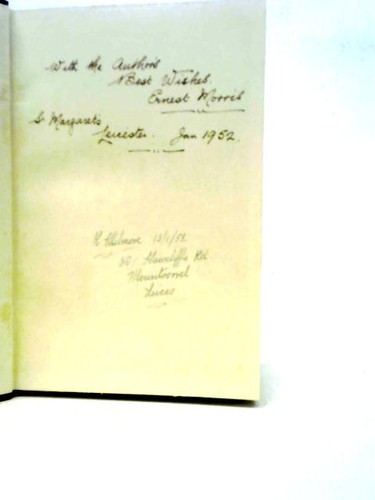 With the Author's
Best Wishes.
Ernest Morris
S. Margaret's
Leicester. Jan 1952.
12/1/52
50 Hawcliffe Rd
Mountsorrel
Leics